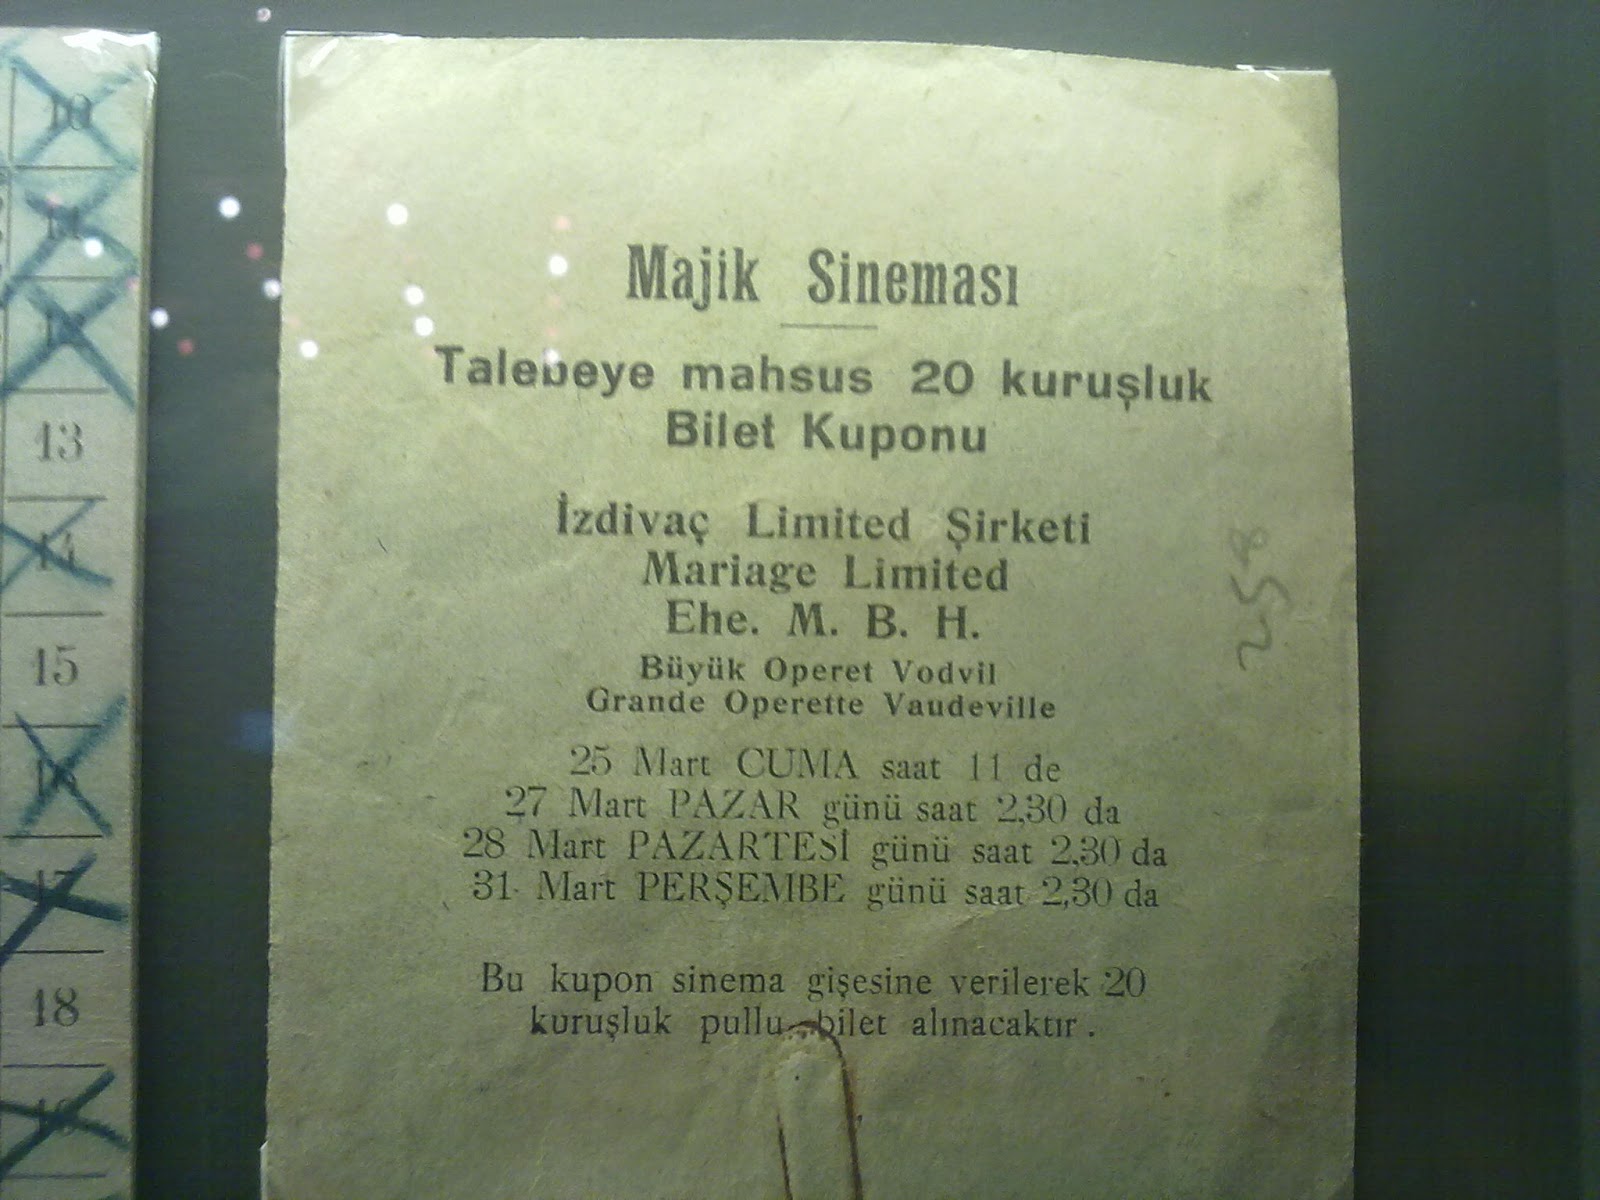 Majik Sineması
Talebeye mahsus 20 kuruşluk
Bilet Kuponu
İzdivaç Limited Şirketi
Mariage Limited
Ehe. M. B. H.
Büyük Operet Vodvil
Grande Operette Vaudeville
25 Mart CUMA saat 11 de
27 Mart PAZAR günü saat 2,30 da
28 Mart PAZARTESİ günü saat 2,30 da
31 Mart PERŞEMBE günü saat 2,30 da
Bu kupon sinema gişesine verilerek 20
kuruşluk pullu bilet alınacaktır .
258
10
11
12
13
14
15
16
17
18
19